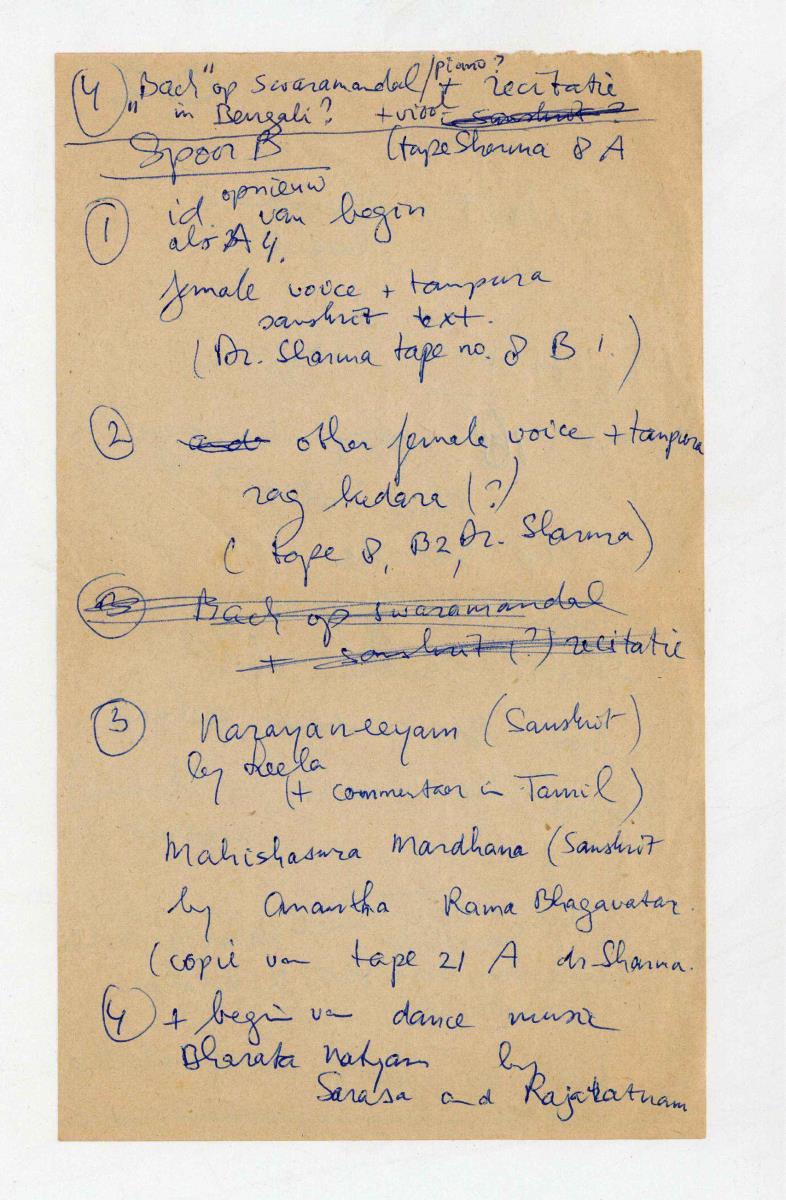 ④ „Bach" op swaramandal / piano? + recitatie
in Bengali? + viool sanskrit?
Spoor B (tape Sharma 8 A
① id opnieuw van begin
als A 4.
female voice + tampura
sanskrit text.
(Dr. Sharma tape no. 8 B 1.)
② other female voice + tampura
rag kedara (?)
( tape 8, B2, Dr. Sharma)
③ Bach op swaramandal
+ sanskrit (?) recitatie
③ Narayaneeyam (Sanskrit)
by Leela
(+ commentaar in Tamil)
Mahishasura Mardhana (Sanskrit
by Anantha Rama Bhagavatar.
(copie van tape 21 A dr Sharma.
④ + begin van dance music
Bharata Natyam by
Sarasa and Rajaratnam